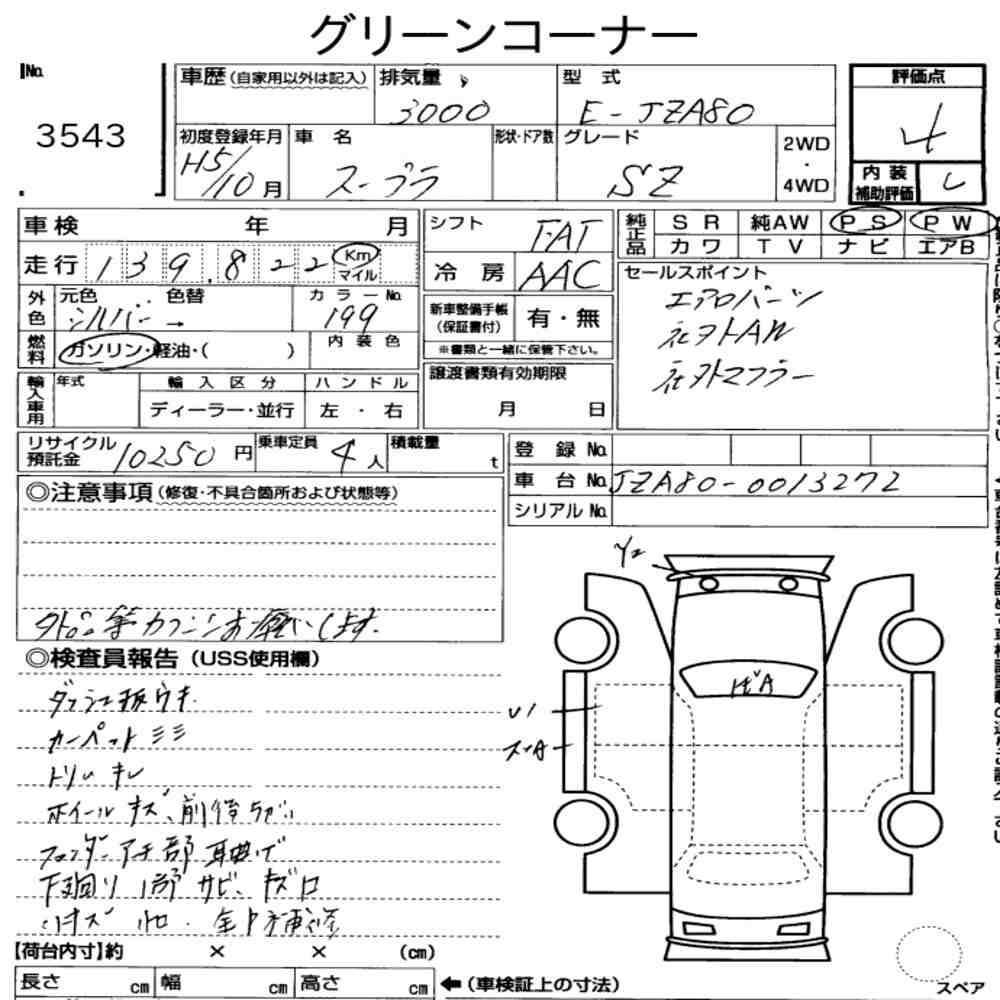 グリーンコーナー
No.
3543
車歴(自家用以外は記入)
排気量
3000
型 式
E-JZA80
評価点
4
初度登録年月
H5/10月
車 名
スープラ
形状・ドア数
グレード
SZ
2WD
・
4WD
内 装
補助評価
C
車検 年 月
走行 139,822 Km マイル
外色
元色 色替
シルバー →
カラーNo.
199
燃料
ガソリン・軽油・( )
内装色
輸入車用
年式
輸入区分
ディーラー・並行
ハンドル
左・右
シフト
FAT
冷房
AAC
新車整備手帳
(保証書付)
有・無
※書類と一緒に保管下さい。
譲渡書類有効期限
月 日
純正品
SR 純AW PS PW
カワ TV ナビ エアB
セールスポイント
エアロパーツ
社外AW
社外マフラー
リサイクル
預託金
10250円
乗車定員
4人
積載量
t
登録No.
車台No. JZA80-0013272
シリアルNo.
◎注意事項(修復・不具合箇所および状態等)
外品等カクニンお願いします.
◎検査員報告(USS使用欄)
ダッシュ板ウキ
カーペットシミ
トリムキレ
ホイールキズ、前後ちがい
フェンダーアーチ部耳曲げ
下廻り1部サビ、キズ
Y2
U1
ス・A
【荷台内寸】約 × × (cm)
長さ cm 幅 cm 高さ cm
←(車検証上の寸法)
スペア